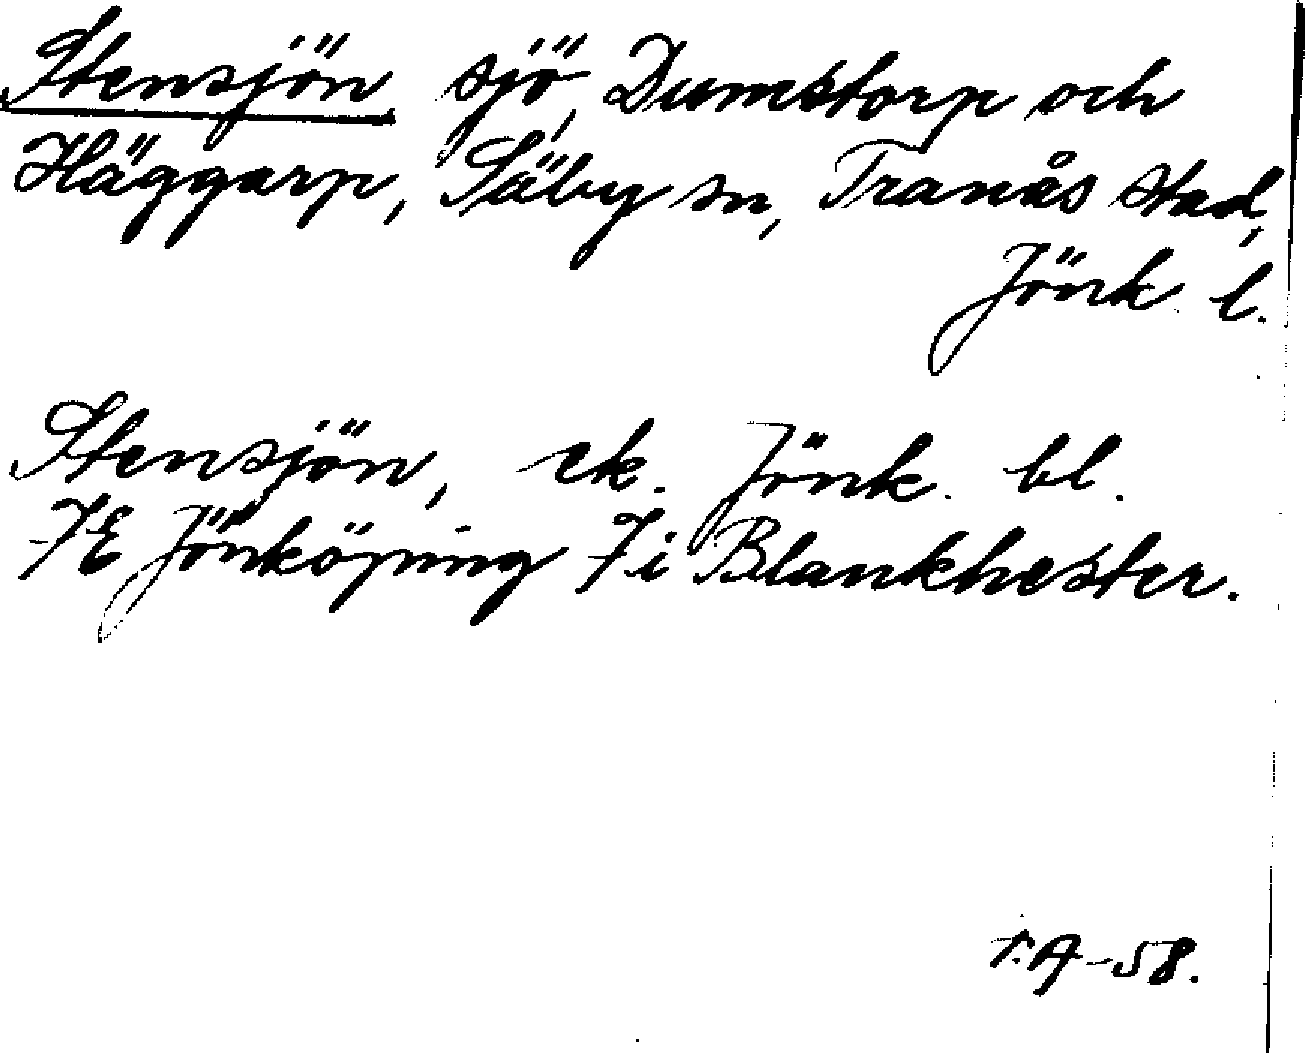 Stensjön sjö, Dumstorp och
Häggarp, Säby sn, Tranås stad,
Jönk. l.
Stensjön, ek. Jönk. bl.
7E Jönköping 7i Blankhester.
T.A-58.